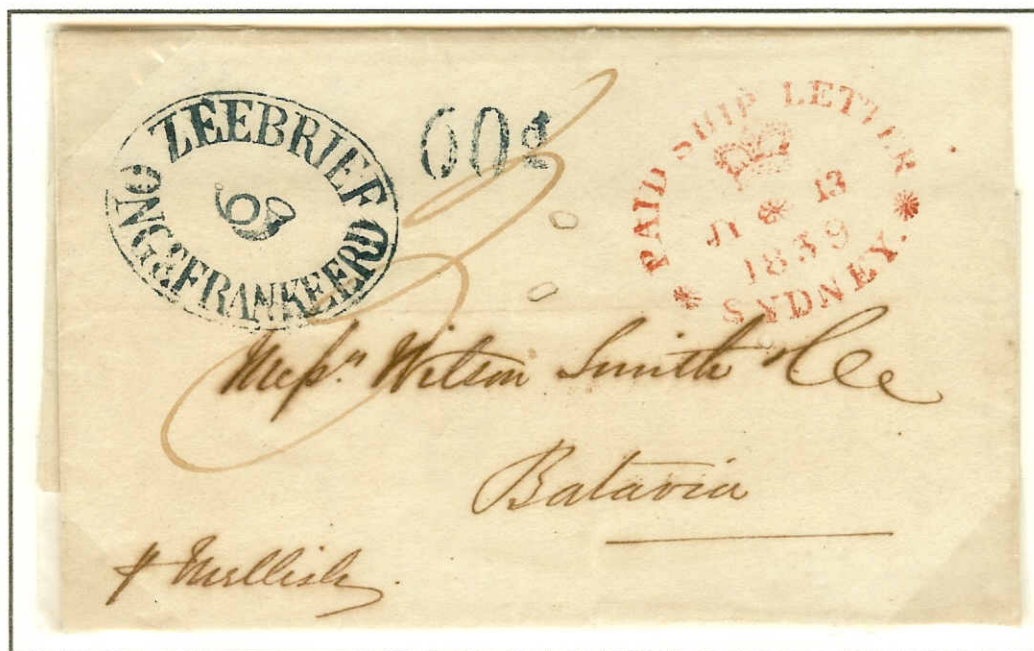 ZEEBRIEF
ONGEFRANKEERD
60 d
PAID SHIP LETTER
JY 13
1839
SYDNEY.
3
Messrs Wilson Smith & Co
Batavia
p Mellish